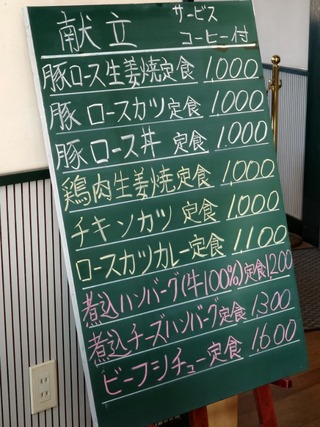 献立 サービス
コーヒー付
豚ロース生姜焼定食 1,000
豚ロースカツ定食 1,000
豚ロース丼 定食 1,000
鶏肉生姜焼定食 1,000
チキンカツ 定食 1,000
ロースカツカレー定食 1,100
煮込ハンバーグ(牛100%)定食 1200
煮込チーズハンバーグ定食 1,300
ビーフシチュー定食 1,600